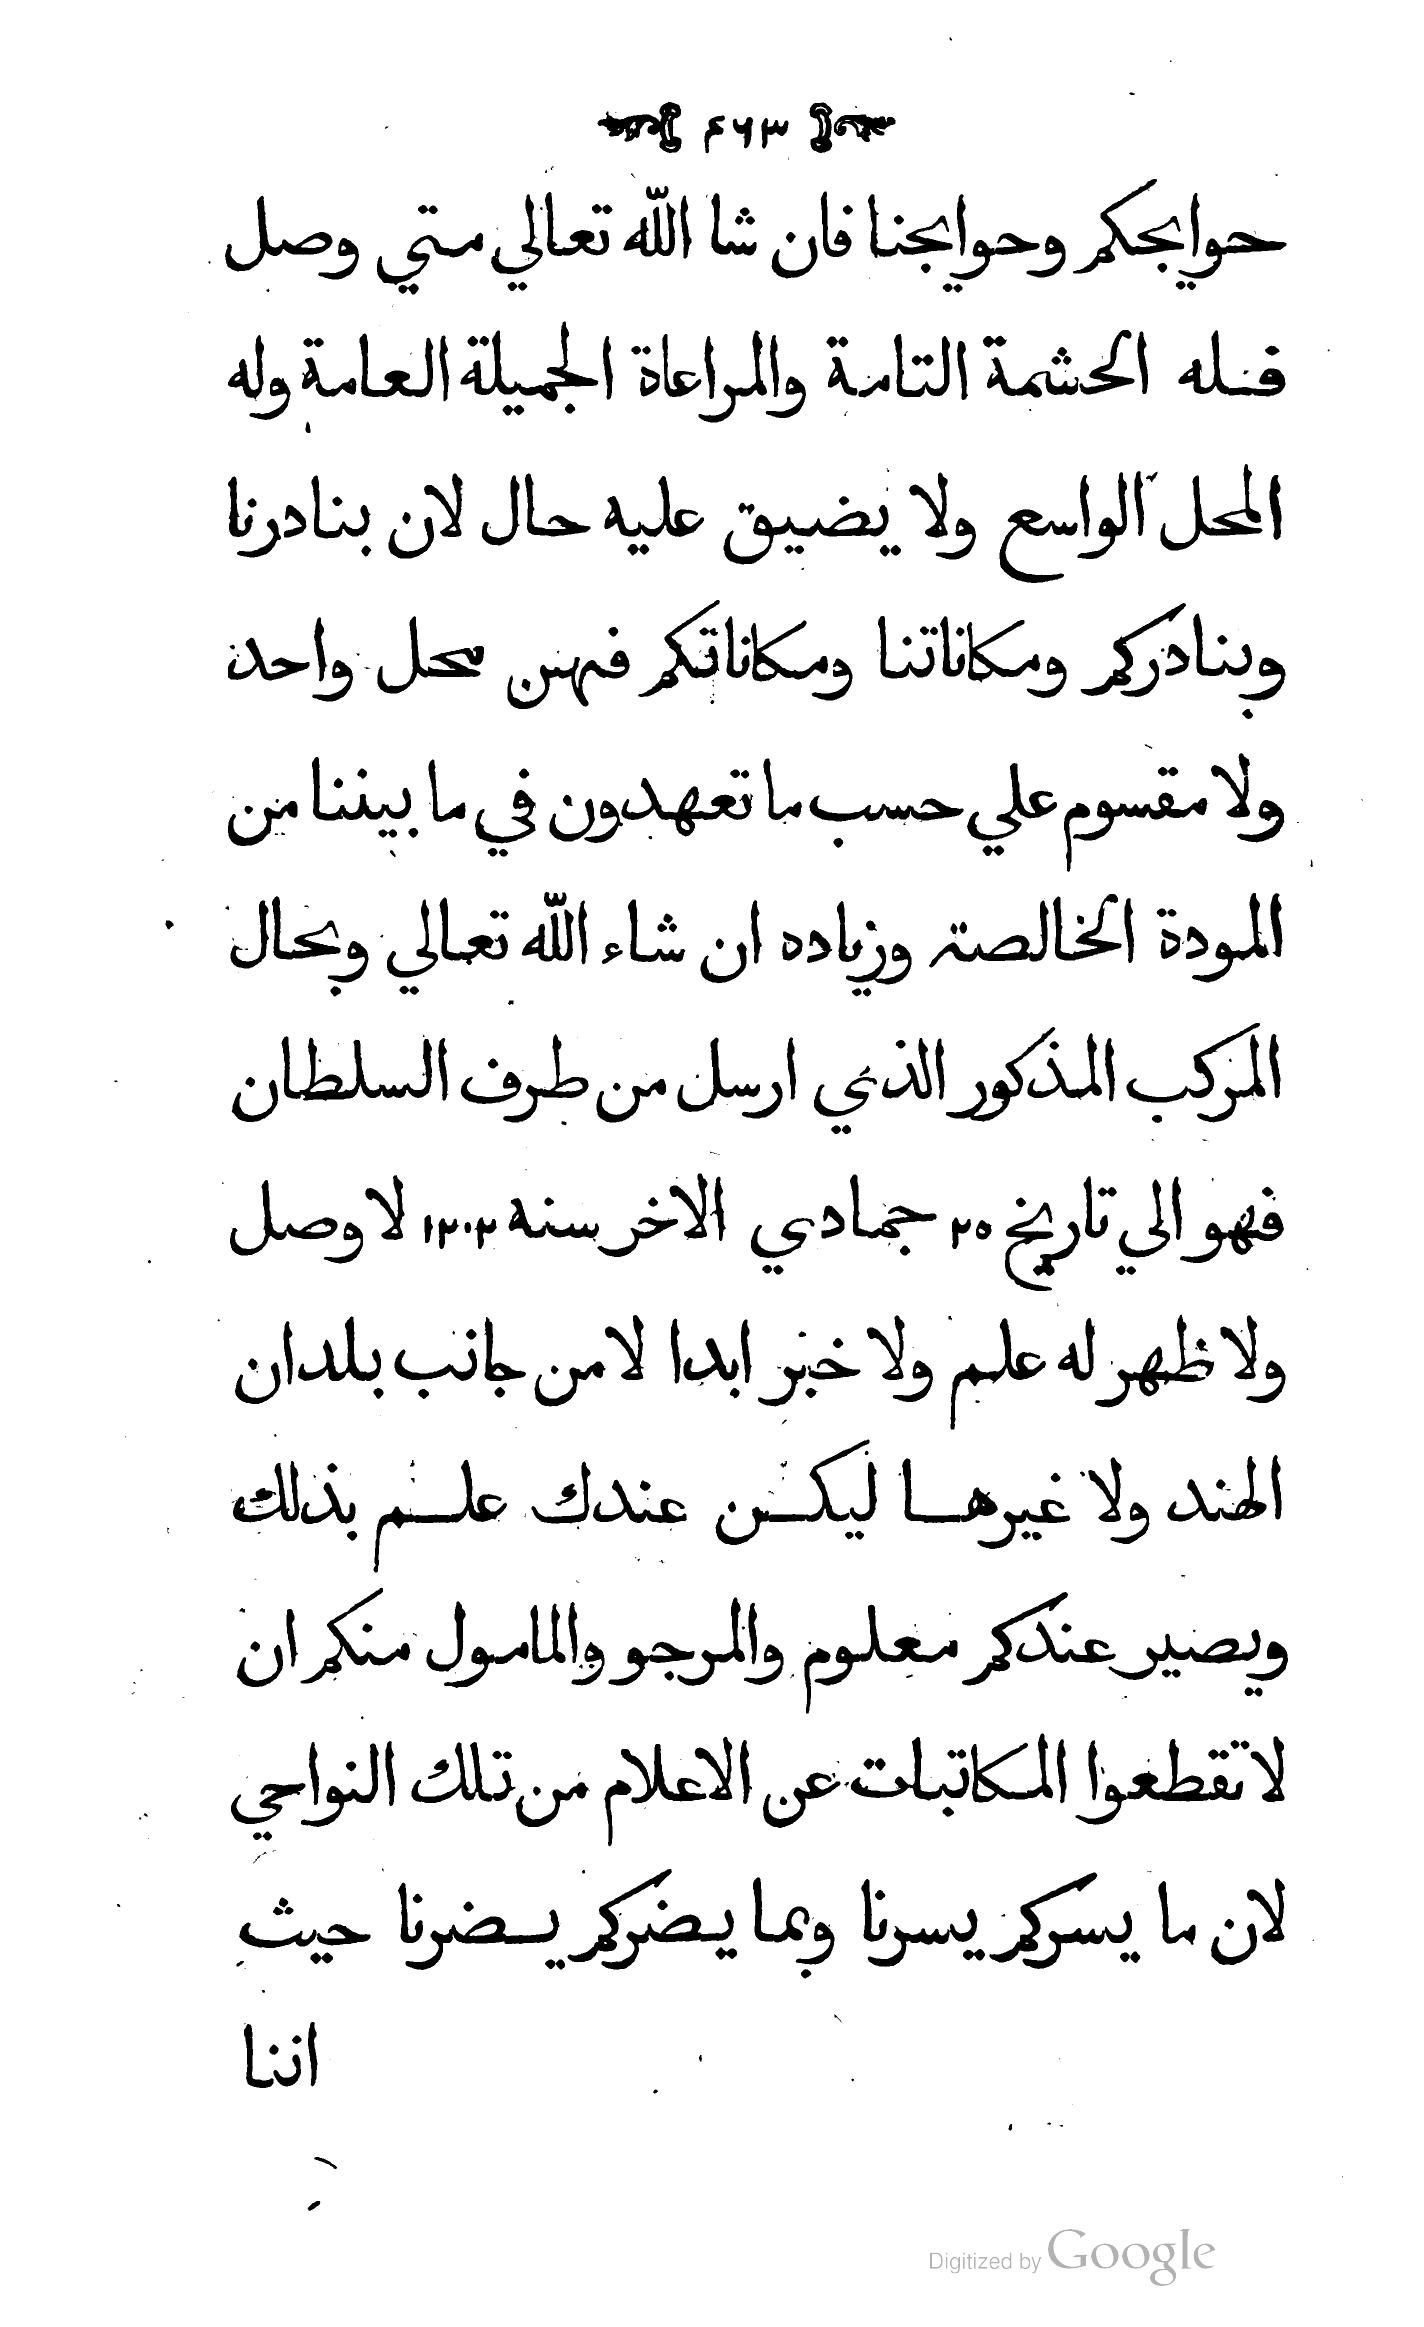 ۴۶۳
حوايجكم وحوايجنا فان شا الله تعالي متي وصل
فله الحشمة التامة والمراعاة الجميلة العامة وله
المحل الواسع ولا يضيق عليه حال لان بنادرنا
وبنادركم ومكاناتنا ومكاناتكم فهن محل واحد
ولا مقسوم علي حسب ما تعهدون في ما بيننا من
المودة الخالصة وزياده ان شاء الله تعالي وبحال
المركب المذكور الذي ارسل من طرف السلطان
فهو الي تاريخ ٢٥ جمادي الاخر سنه ١٢٠٢ لا وصل
ولا ظهر له علم ولا خبر ابدا لا من جانب بلدان
الهند ولا غيرها ليكن عندك علم بذلك
ويصير عندكم معلوم والمرجو والمامول منكم ان
لا تقطعوا المكاتبات عن الاعلام من تلك النواحي
لان ما يسركم يسرنا وبما يضركم يضرنا حيث
اننا
Digitized by Google